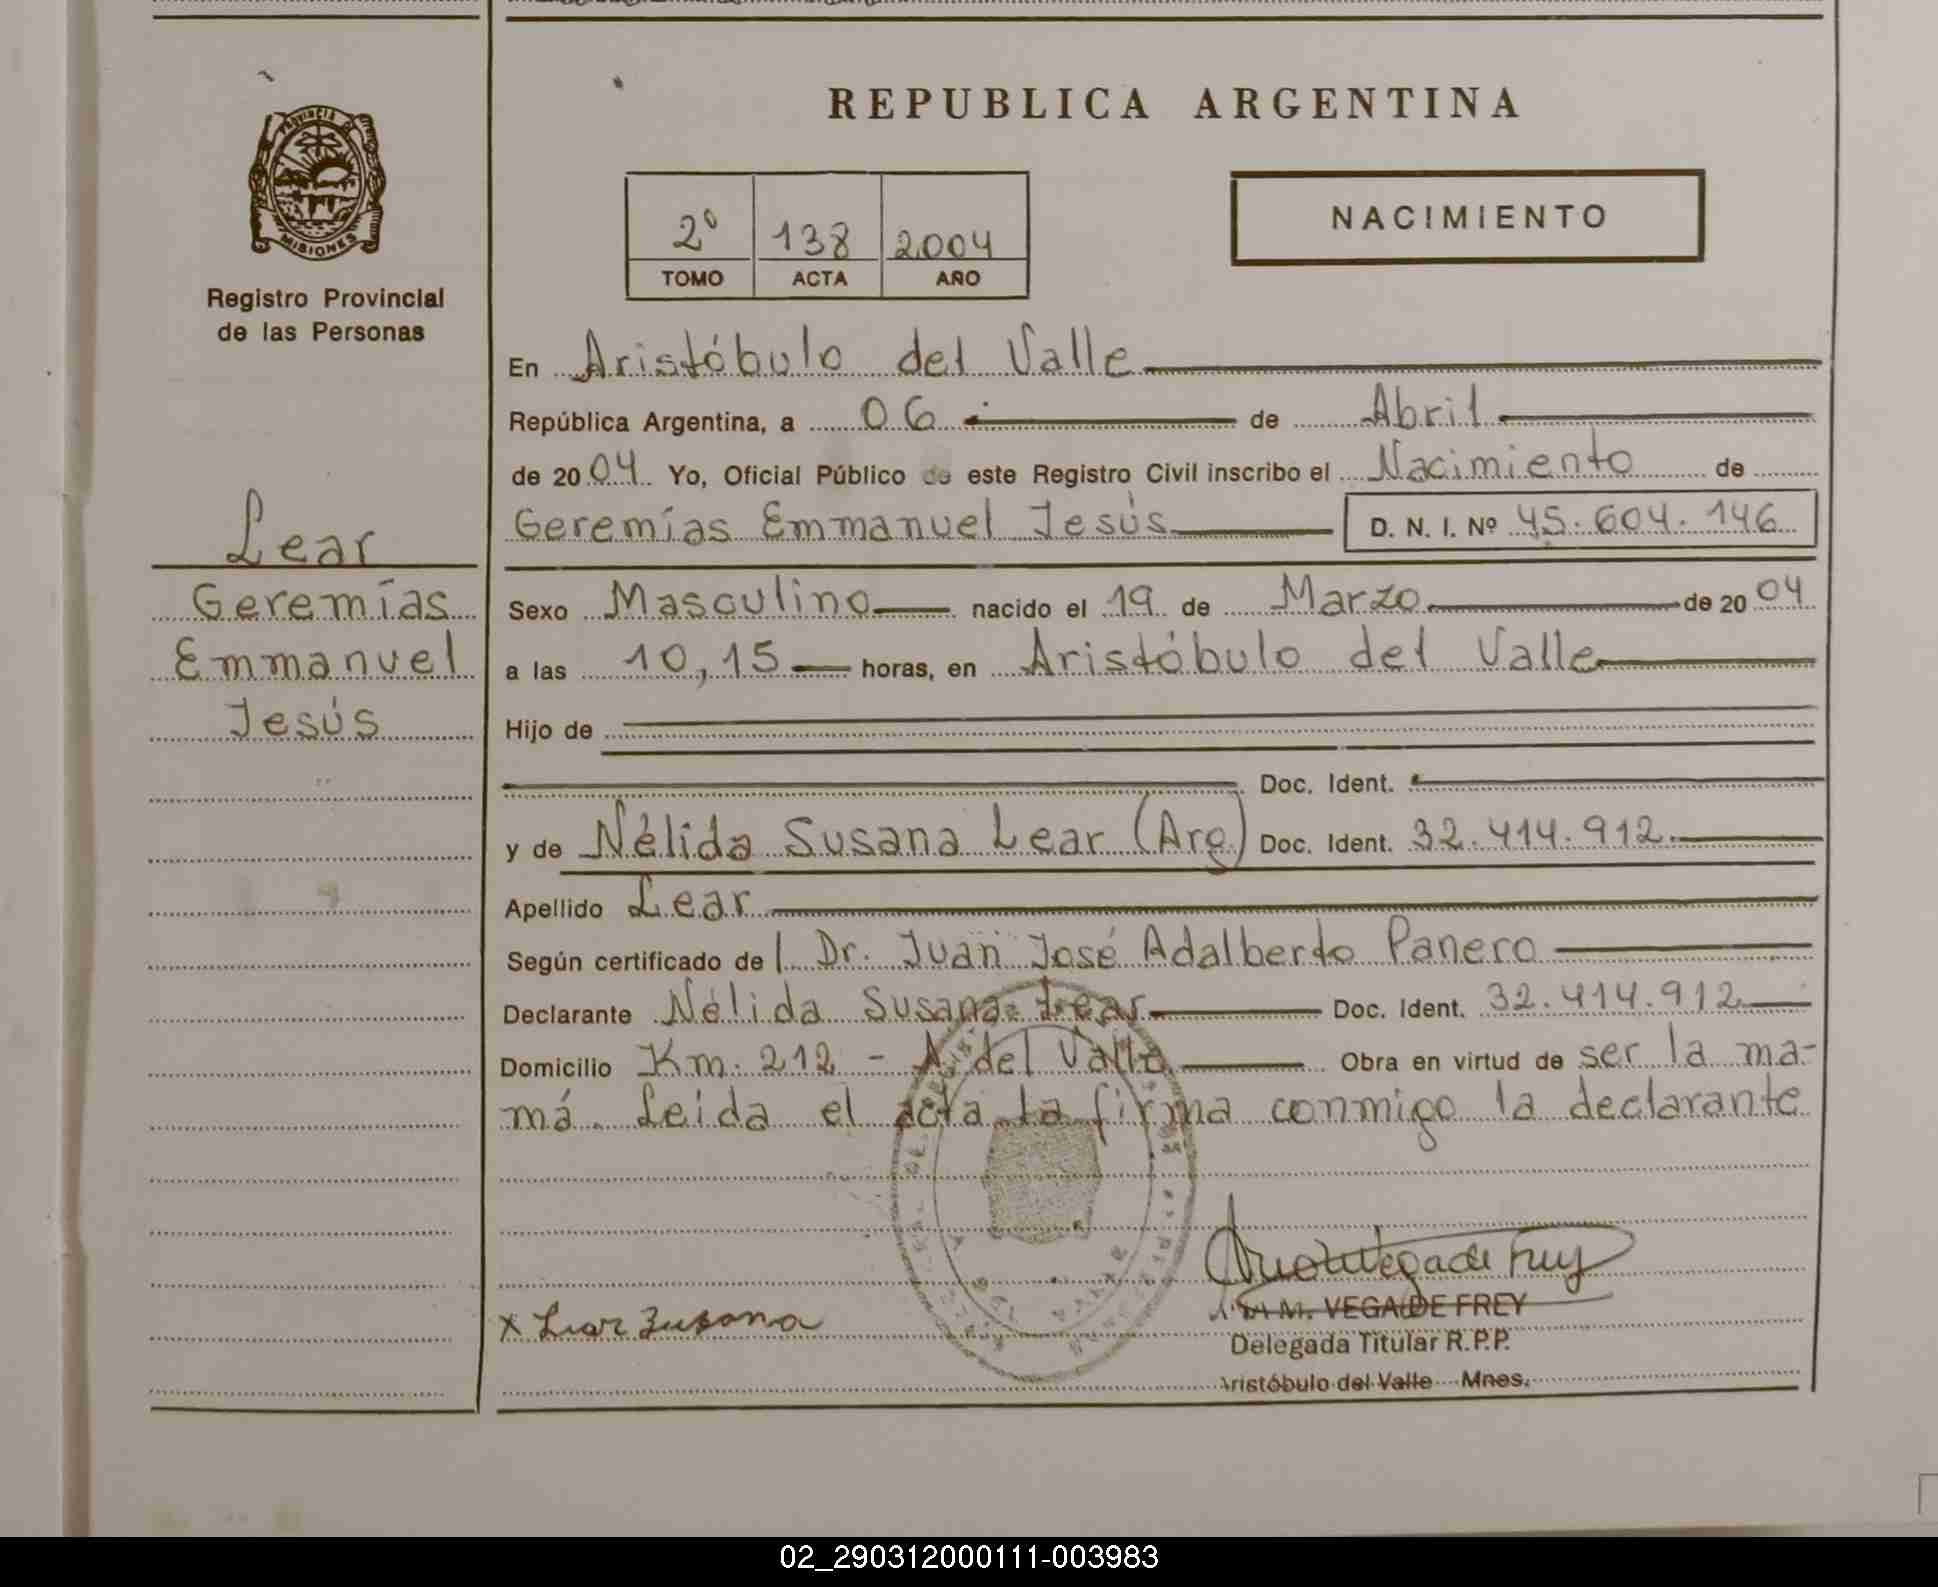 REPUBLICA ARGENTINA
PROVINCIA DE
MISIONES
Registro Provincial
de las Personas
2º 138 2004
TOMO ACTA AÑO
NACIMIENTO
En Aristóbulo del Valle
República Argentina, a 06 de Abril
de 2004 Yo, Oficial Público de este Registro Civil inscribo el Nacimiento de
Geremías Emmanuel Jesús D. N. I. Nº 45.604.146
Lear
Geremías
Emmanuel
Jesús
Sexo Masculino nacido el 19 de Marzo de 2004
a las 10,15 horas, en Aristóbulo del Valle
Hijo de
Doc. Ident.
y de Nélida Susana Lear (Arg) Doc. Ident. 32.414.912
Apellido Lear
Según certificado de Dr. Juan José Adalberto Panero
Declarante Nélida Susana Lear Doc. Ident. 32.414.912
Domicilio Km. 212 - A. del Valle Obra en virtud de ser la ma-
má. Leida el acta la firma conmigo la declarante
x Lear Susana
M. VEGA DE FREY
Delegada Titular R.P.P.
Aristóbulo del Valle Mnes.
02_290312000111-003983